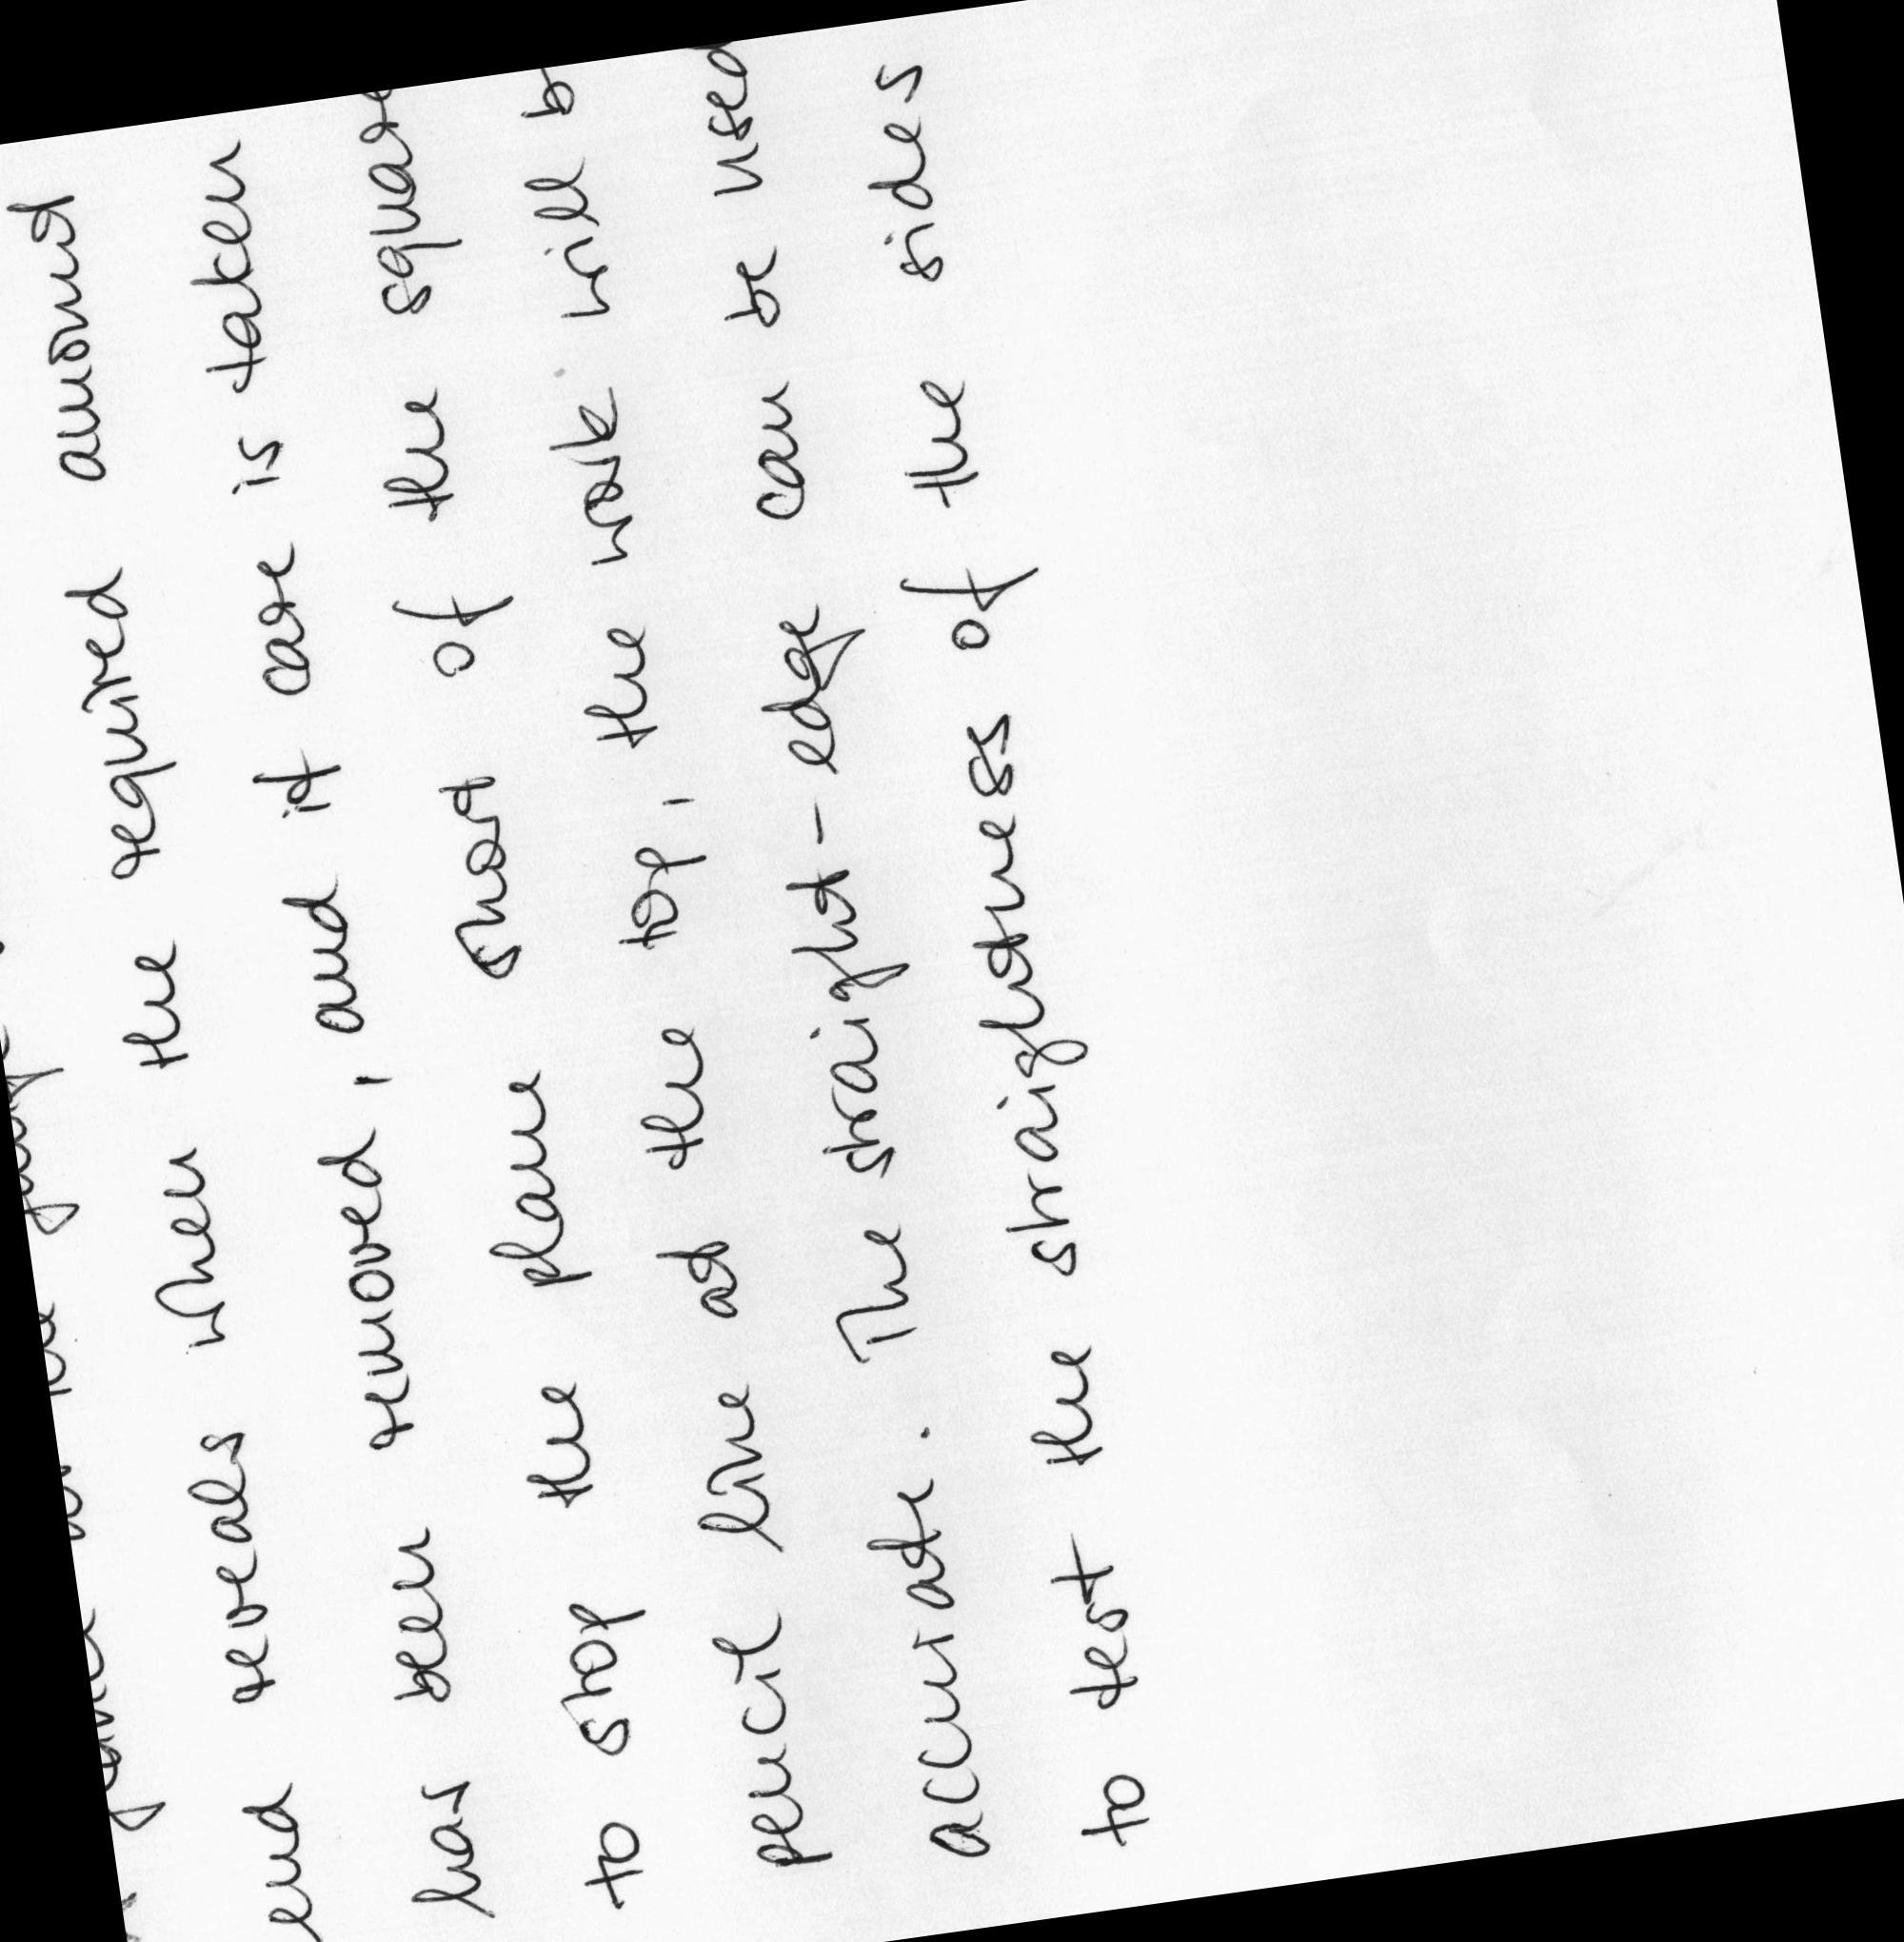 end reveals when the required amount
has been removed, and if care is taken
to stop the plane short of the square
pencil line at the top, the work will b
accurate. The straight-edge can be used
to test the straightness of the sides